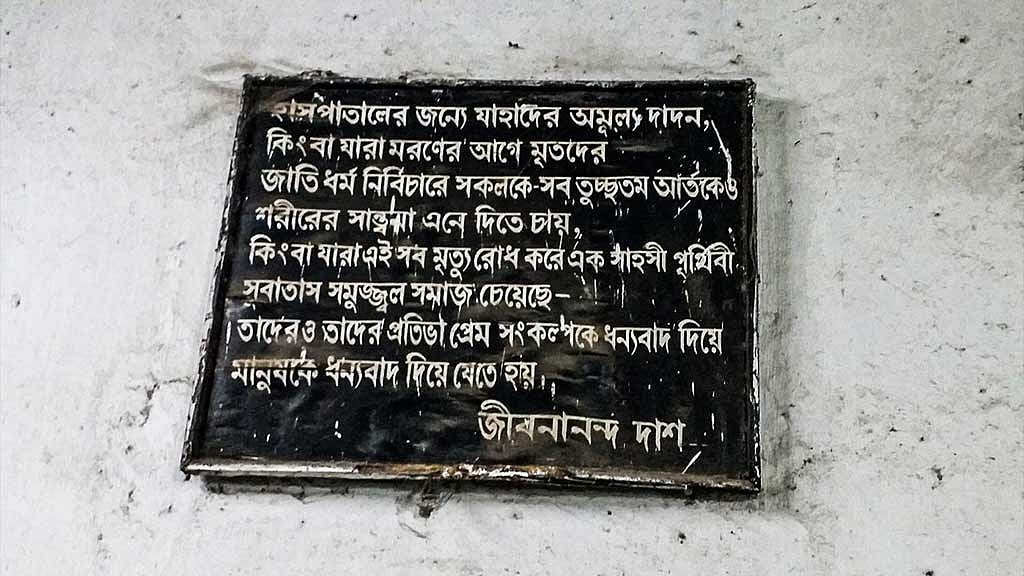 হাসপাতালের জন্যে যাহাদের অমূল্য দাদন,
কিংবা যারা মরণের আগে মৃতদের
জাতি ধর্ম নির্বিচারে সকলকে-সব তুচ্ছতম আর্তকেও
শরীরের সান্ত্বনা এনে দিতে চায়,
কিংবা যারা এই সব মৃত্যু রোধ করে এক সাহসী পৃথিবী
সুবাতাস সমুজ্জ্বল সমাজ চেয়েছে–
তাদেরও তাদের প্রতিভা প্রেম সংকল্পকে ধন্যবাদ দিয়ে
মানুষকে ধন্যবাদ দিয়ে যেতে হয়।
জীবনানন্দ দাশ